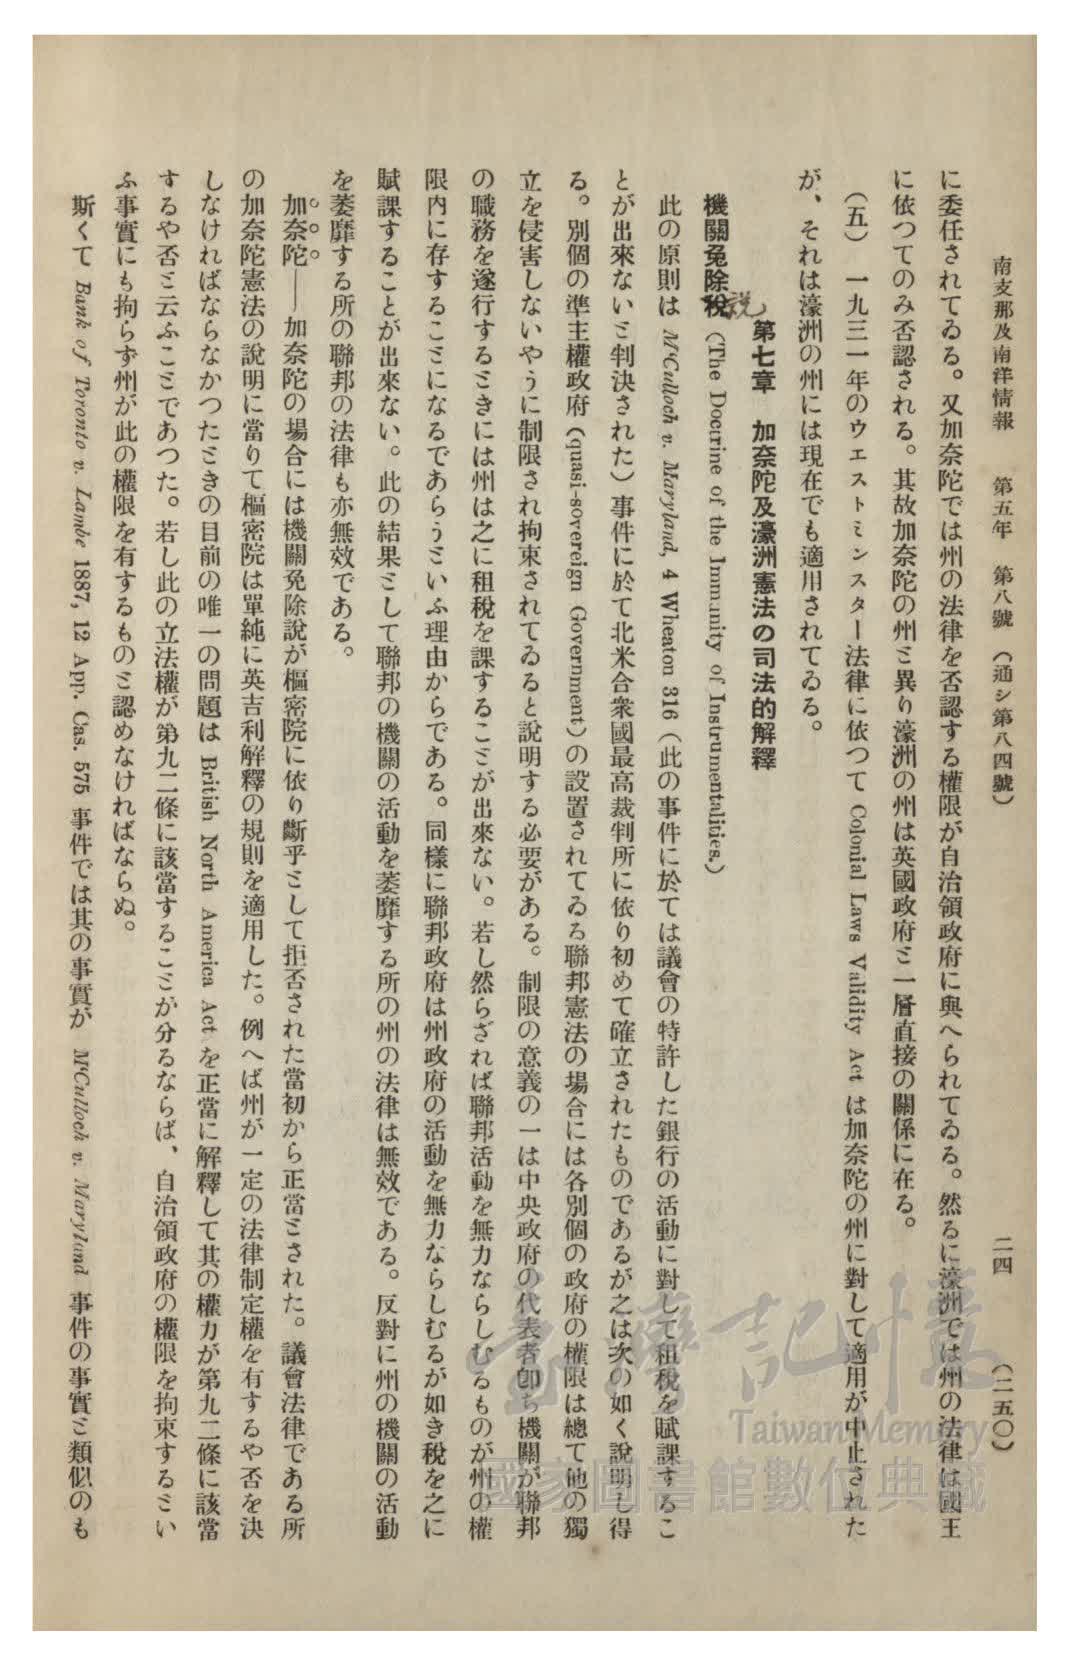 南支那及南洋情報　第五年　第八號　（通シ第八四號）　二四　（二五〇）
に委任されてゐる。又加奈陀では州の法律を否認する權限が自治領政府に與へられてゐる。然るに濠洲では州の法律は國王
に依つてのみ否認される。其故加奈陀の州ミ異り濠洲の州は英國政府ミ一層直接の關係に在る。
（五）　一九三一年のウエストミンスター法律に依つて Colonial Laws Validity Act は加奈陀の州に對して適用が中止された
が、それは濠洲の州には現在でも適用されてゐる。
第七章　加奈陀及濠洲憲法の司法的解釋
機關免除稅（The Doctrine of the Immunity of Instrumentalities.）
説
此の原則は M'Culloch v. Maryland, 4 Wheaton 316（此の事件に於ては議會の特許した銀行の活動に對して租稅を賦課するこ
とが出來ないミ判決された）事件に於て北米合衆國最高裁判所に依り初めて確立されたものであるが之は次の如く說明し得
る。別個の準主權政府（quasi-sovereign Government）の設置されてゐる聯邦憲法の場合には各別個の政府の權限は總て他の獨
立を侵害しないやうに制限され拘束されてゐると說明する必要がある。制限の意義の一は中央政府の代表者卽ち機關が聯邦
の職務を遂行するミきには州は之に租稅を課するこミが出來ない。若し然らざれば聯邦活動を無力ならしむるものが州の權
限內に存するこミになるであらうミいふ理由からである。同樣に聯邦政府は州政府の活動を無力ならしむるが如き稅を之に
賦課することが出來ない。此の結果ミして聯邦の機關の活動を萎靡する所の州の法律は無效である。反對に州の機關の活動
を萎靡する所の聯邦の法律も亦無效である。
加奈陀――加奈陀の場合には機關免除說が樞密院に依り斷乎ミして拒否された當初から正當ミされた。議會法律である所
の加奈陀憲法の說明に當りて樞密院は單純に英吉利解釋の規則を適用した。例へば州が一定の法律制定權を有するや否を決
しなければならなかつたミきの目前の唯一の問題は British North America Act を正當に解釋して其の權力が第九二條に該當
するや否ミ云ふこミであつた。若し此の立法權が第九二條に該當するこミか分るならば、自治領政府の權限を拘束するミい
ふ事實にも拘らず州が此の權限を有するものミ認めなければならぬ。
斯くて Bank of Toronto v. Lambe 1887, 12 App. Cas. 575 事件では其の事實が M'Culloch v. Maryland 事件の事實ミ類似のも
臺灣記憶
Taiwan Memory
國家圖書館數位典藏